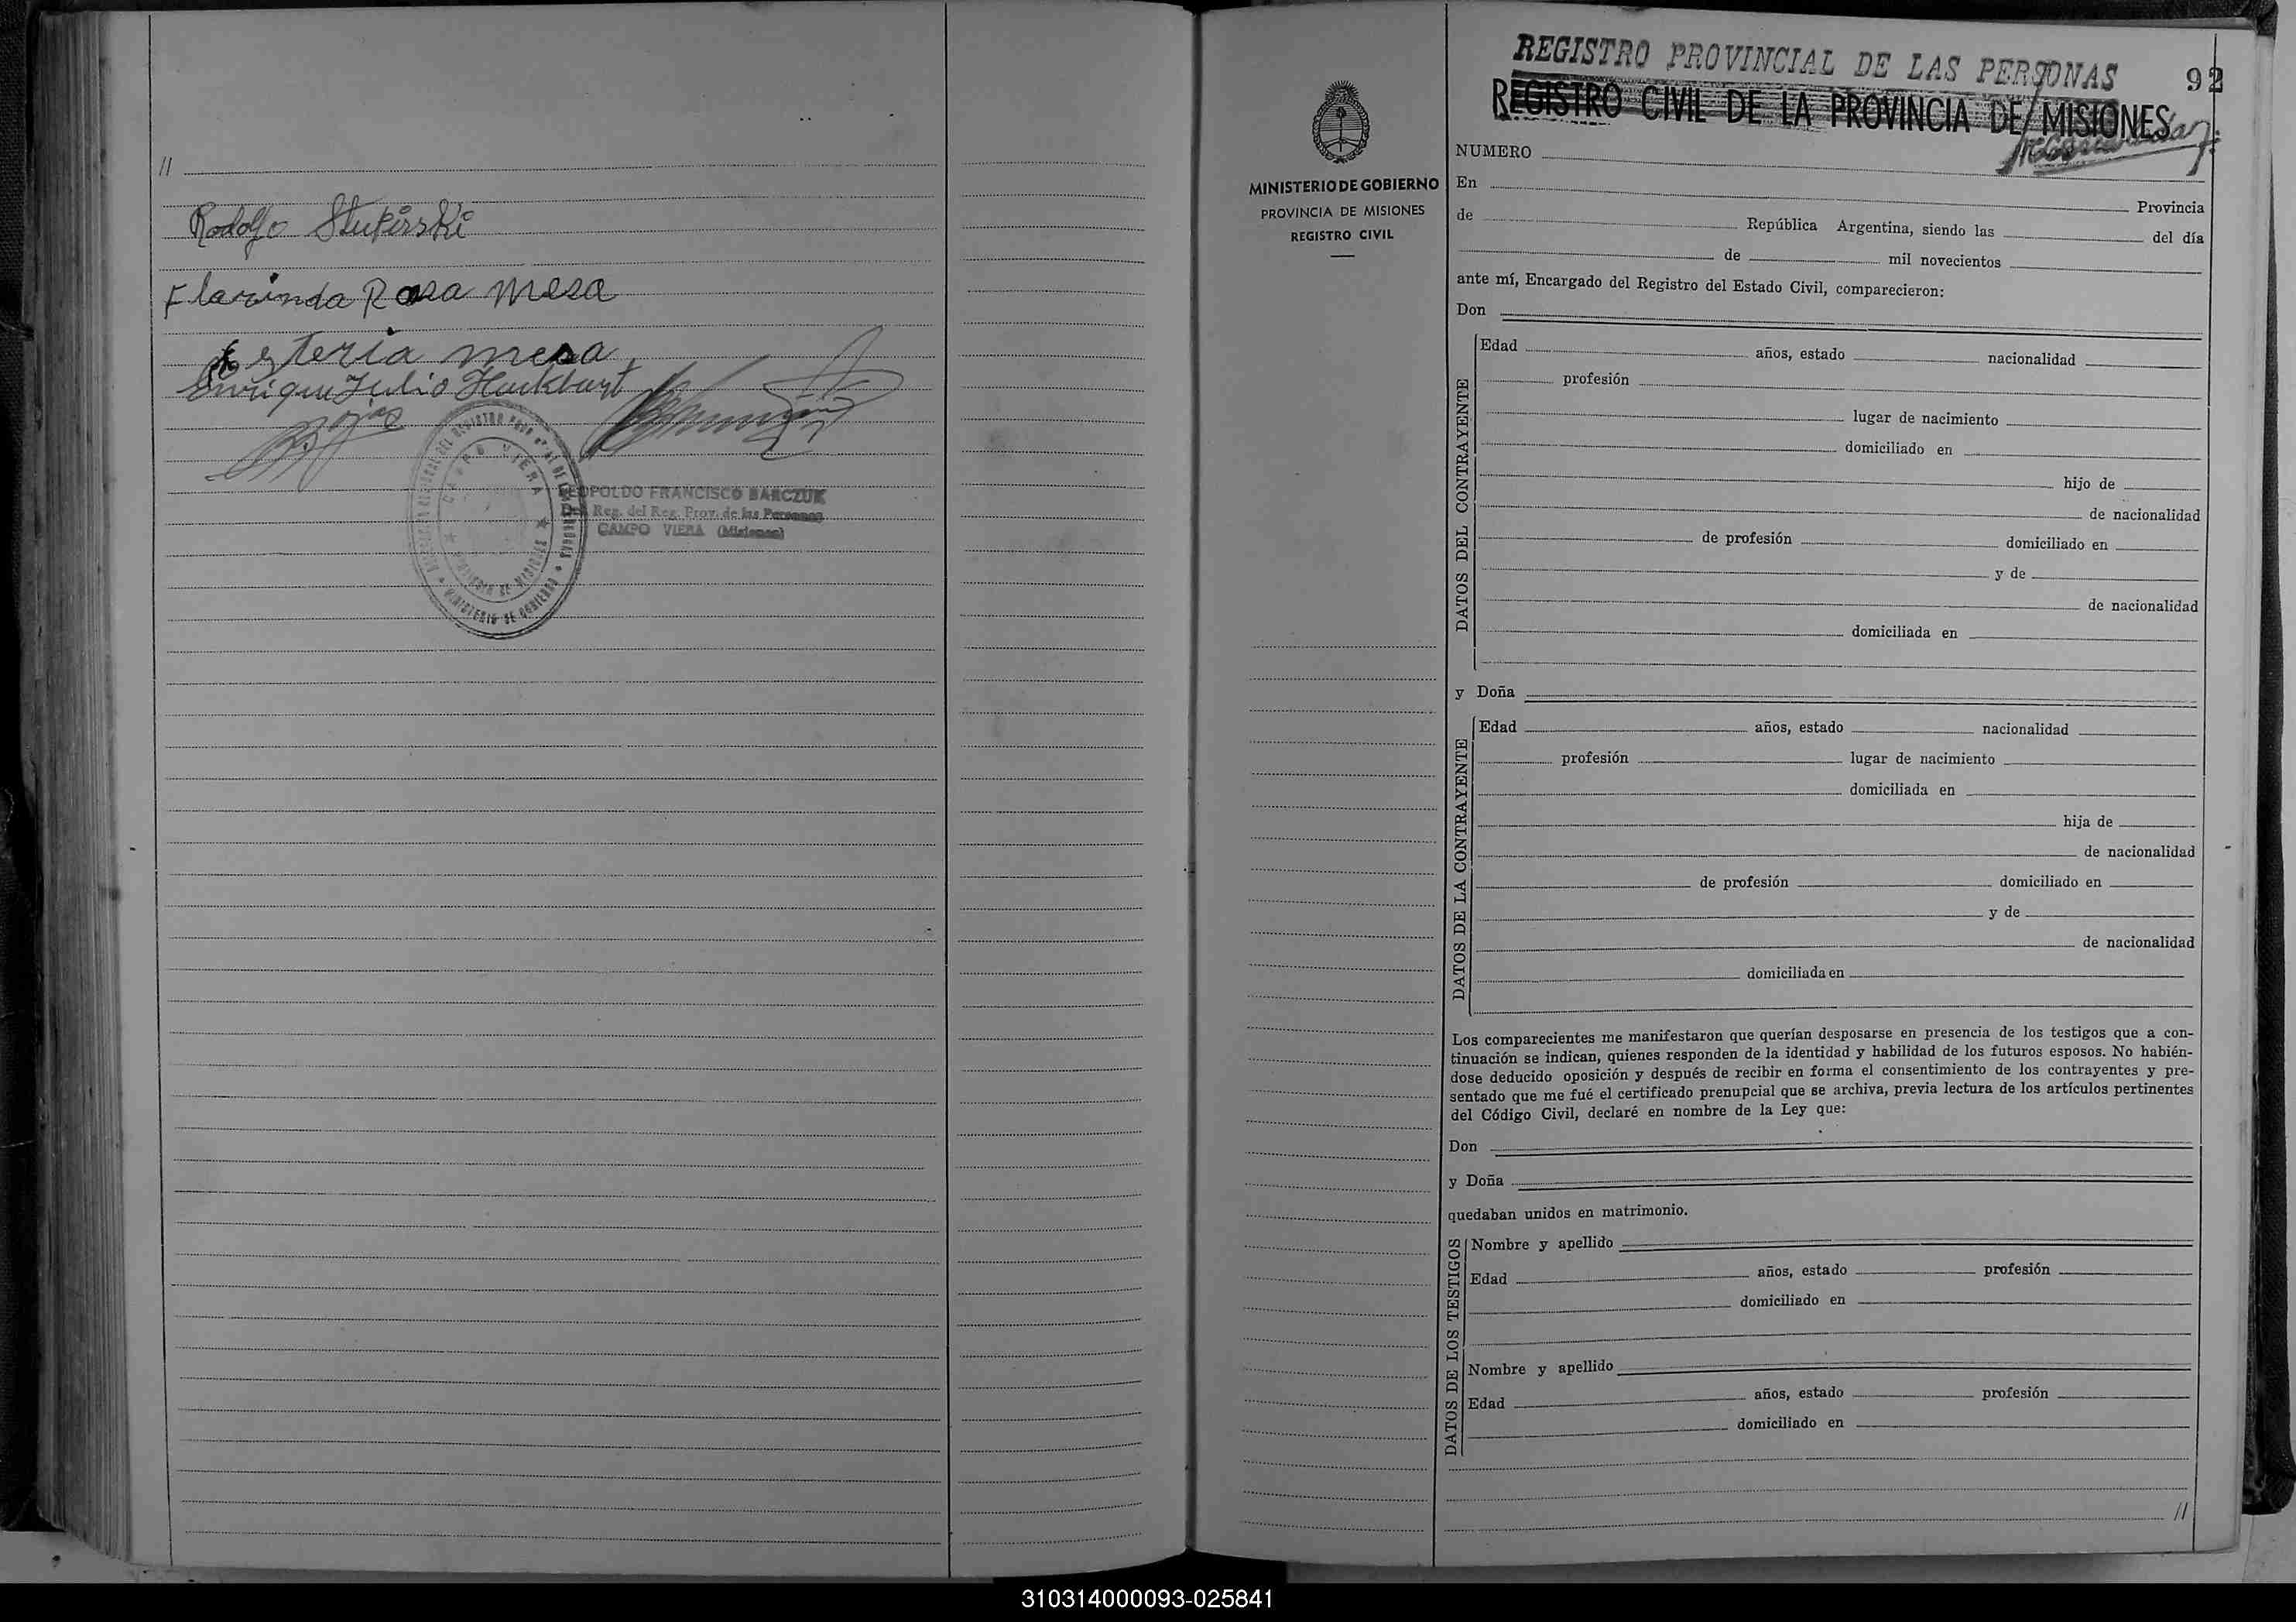 //
Rodolfo Stupirski
Flarinda Rosa mesa
Esteria mesa
Enrique Julio Hackbart
CAMPO VIERA
MINISTERIO DE GOBIERNO
LEOPOLDO FRANCISCO BARCZUK
Del. Reg. del Reg. Prov. de las Personas
CAMPO VIERA (Misiones)
REGISTRO PROVINCIAL DE LAS PERSONAS
92
REGISTRO CIVIL DE LA PROVINCIA DE MISIONES
MINISTERIO DE GOBIERNO
PROVINCIA DE MISIONES
REGISTRO CIVIL
NUMERO
En Provincia
de República Argentina, siendo las del día
de mil novecientos
ante mí, Encargado del Registro del Estado Civil, comparecieron:
Don
DATOS DEL CONTRAYENTE
Edad años, estado nacionalidad
profesión
lugar de nacimiento
domiciliado en
hijo de
de nacionalidad
de profesión domiciliado en
y de
de nacionalidad
domiciliada en
y Doña
DATOS DE LA CONTRAYENTE
Edad años, estado nacionalidad
profesión lugar de nacimiento
domiciliada en
hija de
de nacionalidad
de profesión domiciliado en
y de
de nacionalidad
domiciliada en
Los comparecientes me manifestaron que querían desposarse en presencia de los testigos que a con-
tinuación se indican, quienes responden de la identidad y habilidad de los futuros esposos. No habién-
dose deducido oposición y después de recibir en forma el consentimiento de los contrayentes y pre-
sentado que me fué el certificado prenupcial que se archiva, previa lectura de los artículos pertinentes
del Código Civil, declaré en nombre de la Ley que:
Don
y Doña
quedaban unidos en matrimonio.
DATOS DE LOS TESTIGOS
Nombre y apellido
Edad años, estado profesión
domiciliado en
Nombre y apellido
Edad años, estado profesión
domiciliado en
//
310314000093-025841